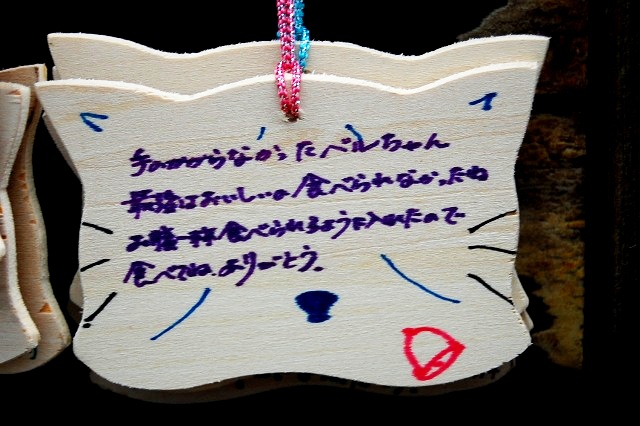 手のかからなかったベルちゃん
最後はおいしいの食べられなかったね
お腹一杯食べられるように入れたので
食べてね。ありがとう。